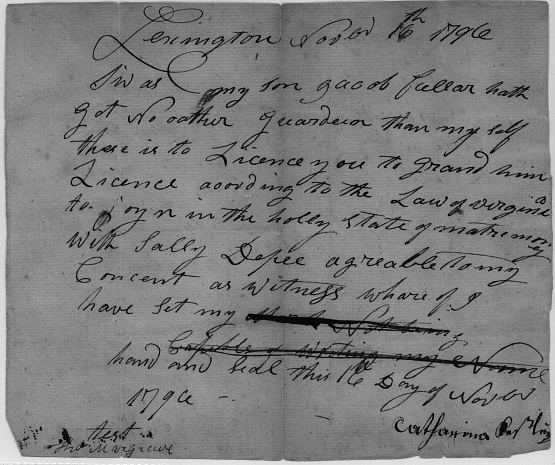 Lexington Novbr 16th 1796
Sir as my son Jacob Cullar hath
got No oather guardeen than my self
these is to Licence you to grand him
Licence acording to the Law of virginia
to joyn in the holly State of matrimony
With Sally Depee agreable to my
Concent as witness whare of I
have Set my mark Not being
Capable of Writing my Name
hand and Seal this 16th Day of Novbr
1796
Catharina
test
Jno Margrave